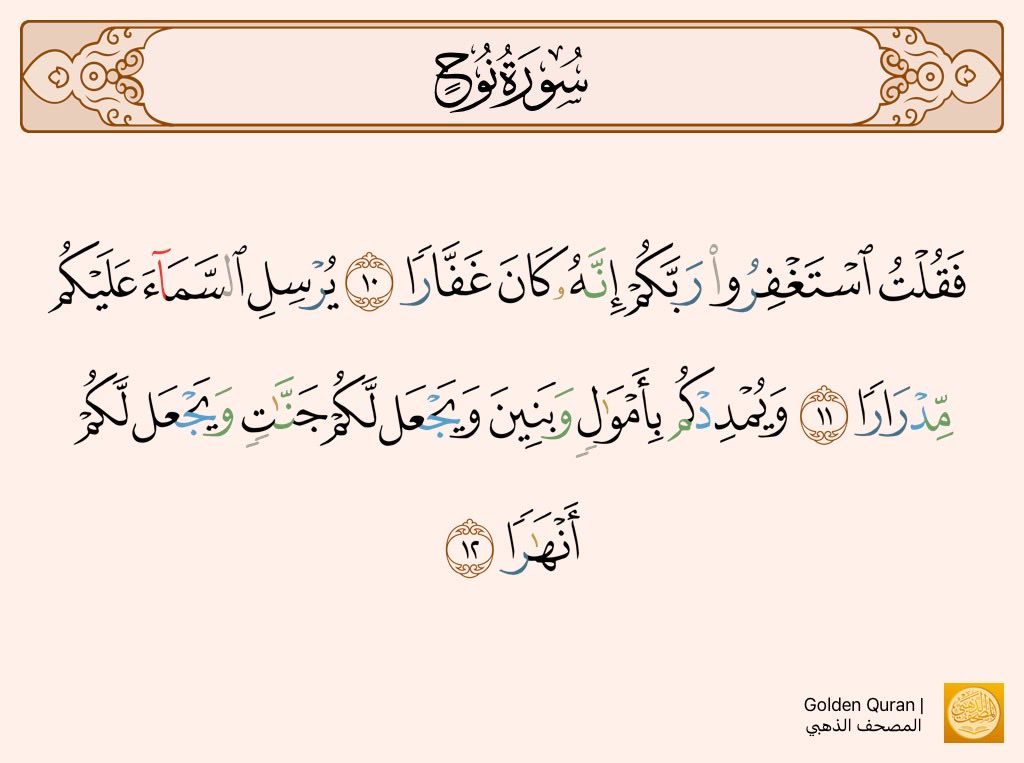 سُورَةُ نُوحٍ
فَقُلْتُ ٱسْتَغْفِرُوا۟ رَبَّكُمْ إِنَّهُۥ كَانَ غَفَّارًا ١٠ يُرْسِلِ ٱلسَّمَآءَ عَلَيْكُم
مِّدْرَارًا ١١ وَيُمْدِدْكُم بِأَمْوَٰلٍ وَبَنِينَ وَيَجْعَل لَّكُمْ جَنَّـٰتٍ وَيَجْعَل لَّكُمْ
أَنْهَـٰرًا ١٢
Golden Quran |
المصحف الذهبي
المصحف الذهبي